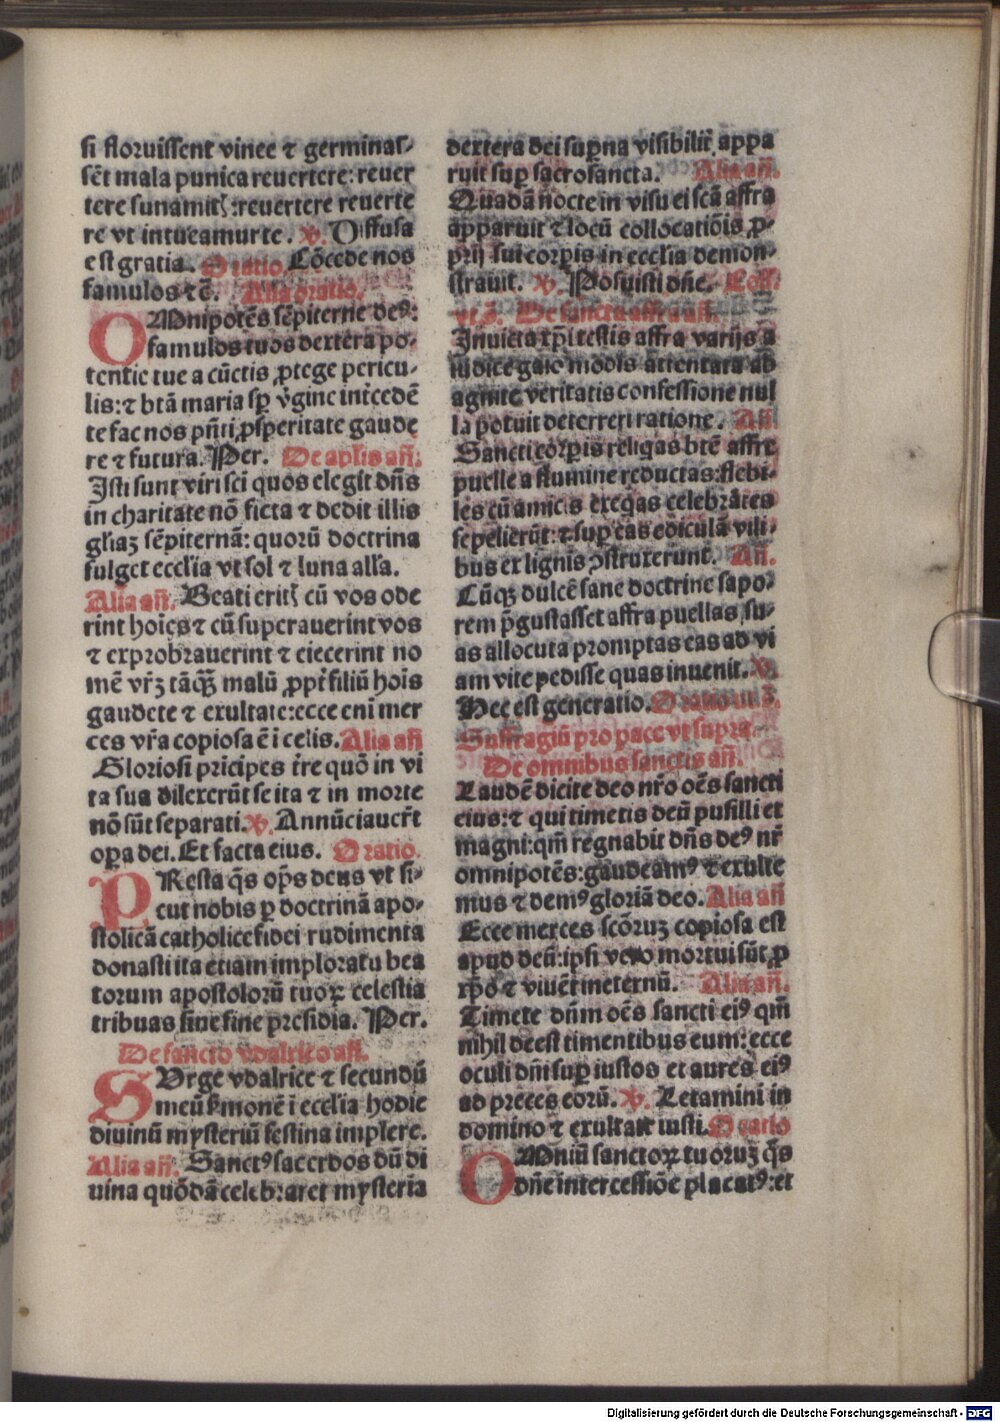 si floruissent vinee ⁊ germinas⸗
sēt mala punica reuertere: reuer
tere sunamitꝭ: reuertere reuerte
re vt intueamur te. ℣. Diffusa
est gratia. Oratio. Cōcede nos
famulos ⁊cē. Alia oratio.
OMnipotēs sēpiterne deꝰ:
famulos tuos dextera po⸗
tentie tue a cūctis ꝓtege pericu⸗
lis: ⁊ btā maria sp̱ v̓gine int̓cedē
te fac nos pn̄ti ꝓsperitate gaude
re ⁊ futura. Per. De aplis an̄.
Isti sunt viri sc̄i quos elegit dn̄s
in charitate nō ficta ⁊ dedit illis
gl̓iaꝫ sēpiternā: quorū doctrina
fulget eccl̓ia vt sol ⁊ luna all̓a.
Alia an̄. Beati eritꝭ cū vos ode
rint hoīes ⁊ cū superauerint vos
⁊ exprobrauerint ⁊ eiecerint no
mē vr̄ꝫ tāꝙ̄ malū ꝓpt̓ filiū hoīs
gaudete ⁊ exultate: ecce eni mer
ces vr̄a copiosa ē i celis. Alia an̄
Gloriosi prīcipes tr̄e quō in vi
ta sua dilexerūt se ita ⁊ in morte
nō sūt separati. ℣. Annūciauer̄t
oꝑa dei. Et facta eius. Oratio.
PResta q̄s op̄s deus vt si⸗
cut nobis ꝑ doctrinā apo⸗
stolicā catholice fidei rudimenta
donasti ita etiam imploratu bea
torum apostolorū tuoꝝ celestia
tribuas sine fine presidia. Per.
De sancto vdalrico an̄.
SUrge vdalrice ⁊ secundū
meū ẜmonē i ecclia hodie
diuinū mysteriū festina implere.
Alia an̄. Sanctꝰ sacerdos dū di
uina quōdā celebraret mysteria
dextera dei suꝑna visibilit̓ appa
ruit suꝑ sacrosancta. Alia an̄.
Quadā nocte in visu ei sc̄a affra
apparuit ⁊ locū collocatiōis ꝓ⸗
prij sui corpis in ecclia demon⸗
strauit. ℣. Posuisti dn̄e. Coll̓.
vt .s̄. De sancta affra an̄.
Inuicta xp̄i testis affra varijs a
iudice gaio modis attentata ab
agnite veritatis confessione nul
la potuit deterreri ratione. An̄.
Sancti corpis religas btē affre
puelle a flumine reductas: flebi⸗
les cū amicis exeq̇as celebrātes
sepelierūt: ⁊ suꝑ eas ediculā vili⸗
bus ex lignis ꝯstruxerunt. An̄.
Cūqꝫ dulcē sane doctrine sapo⸗
rem p̄gustasset affra puellas su⸗
as allocuta promptas eas ad vi
am vite pedisse quas inuenit. ℣.
Hec est generatio. Oratio ut s̄.
Suffragiū pro pace vt supra.
De omnibus sanctis an̄.
Laudē dicite deo nr̄o oēs sancti
eius: ⁊ qui timetis deū pusilli et
magni: qm̄ regnabit dn̄s deꝰ nr̄
omnipotēs: gaudeamꝰ ⁊ exulte
mus ⁊ demꝰ gloriā deo. Alia an̄
Ecce merces scōruꝫ copiosa est
apud deū: ipsi vero mortui sūt ꝓ
xp̄o ⁊ viuēt ineternū. Alia an̄.
Timete dn̄m oēs sancti eiꝰ qm̄
nihil deest timentibus eum: ecce
oculi dn̄i suꝑ iustos et aures eiꝰ
ad preces eorū. ℣. Letamini in
domino ⁊ exultate iusti. Oratio
OMniū sanctoꝝ tuoruꝫ q̄s
dn̄e intercessiōe placatꝰ: et
Digitalisierung gefördert durch die Deutsche Forschungsgemeinschaft - DFG